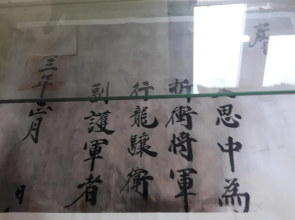 思中為
折衝將軍
行龍驤衛
副護軍者
三年正月 日